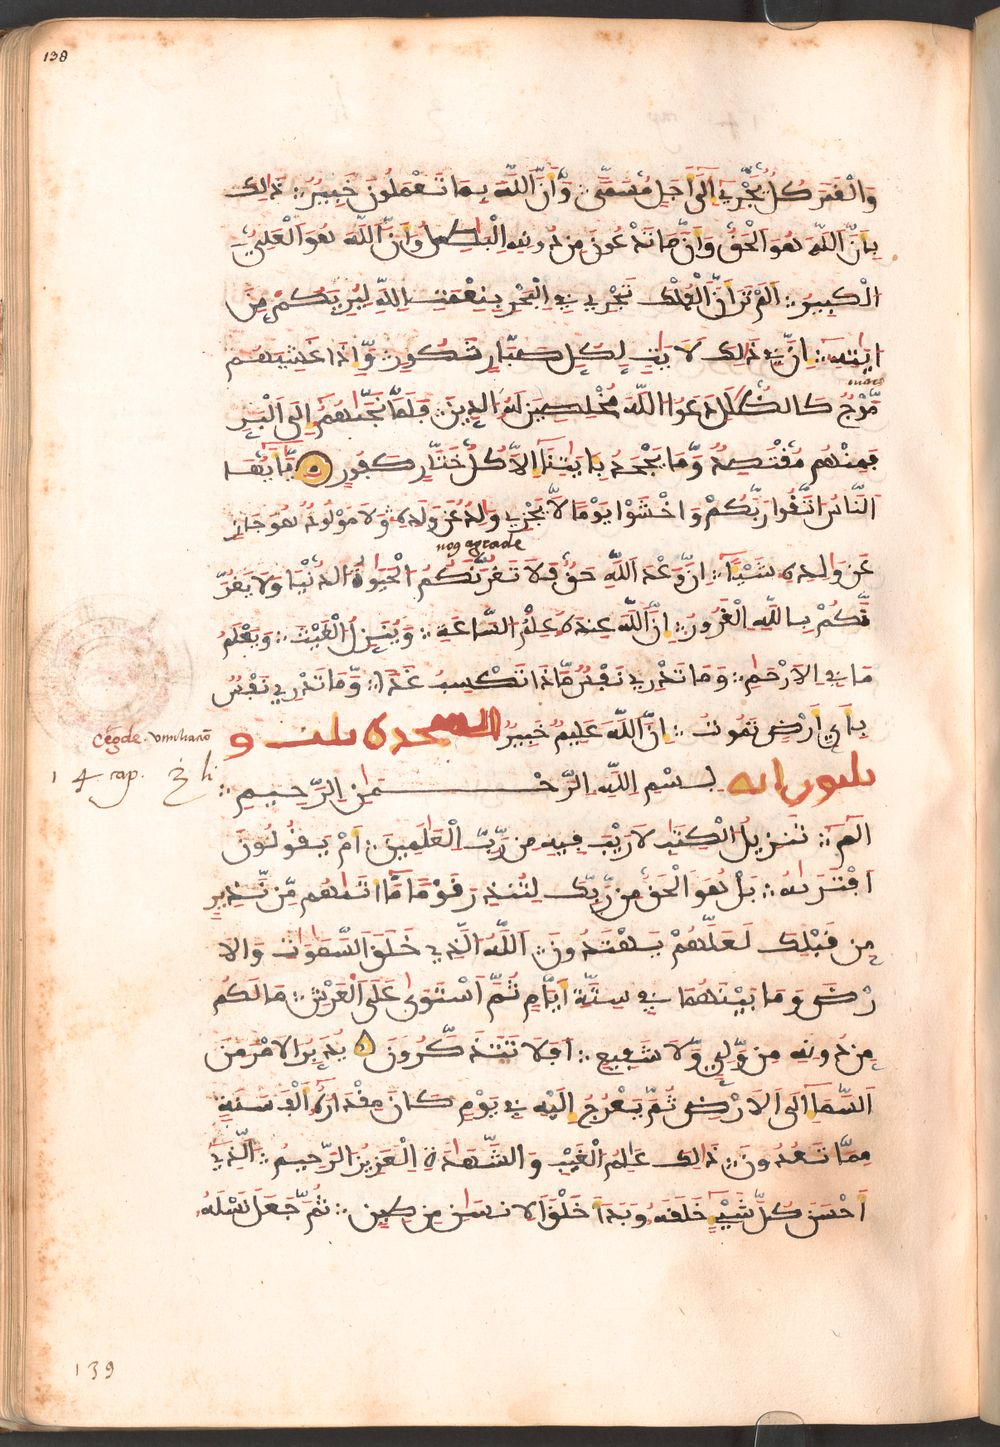 138
وَالْقَمَرَ كُلٌّ يَجْرِي إِلَى أَجَلٍ مُّسَمًّى وَأَنَّ اللَّهَ بِمَا تَعْمَلُونَ خَبِيرٌ ذَلِكَ
بِأَنَّ اللَّهَ هُوَ الْحَقُّ وَأَنَّ مَا تَدْعُونَ مِن دُونِهِ الْبَطِلُ وَأَنَّ اللَّهَ هُوَ الْعَلِيُّ
الْكَبِيرُ أَلَمْ تَرَ أَنَّ الْفُلْكَ تَجْرِي فِي الْبَحْرِ بِنِعْمَتِ اللَّهِ لِيُرِيَكُمْ مِّنَ
ايَتِهِ إِنَّ فِي ذَلِكَ لَايَتٍ لِّكُلِّ صَبَّارٍ شَكُورٍ وَإِذَا غَشِيَهُم
مَّوْجٌ كَالظُّلَلِ دَعَوُا اللَّهَ مُخْلِصِينَ لَهُ الدِّينَ فَلَمَّا نَجَّىهُمْ إِلَى الْبَرِّ
فَمِنْهُم مُّقْتَصِدٌ وَمَا يَجْحَدُ بِايَتِنَا إِلَّا كُلُّ خَتَّارٍ كَفُورٍ يَّأَيُّهَا
النَّاسُ اتَّقُوا رَبَّكُمْ وَاخْشَوْا يَوْمًا لَّا يَجْزِي وَالِدٌ عَن وَلَدِهِ وَلَا مَوْلُودٌ هُوَ جَازٍ
nos agrade
عَن وَالِدِهِ شَيْئًا إِنَّ وَعْدَ اللَّهِ حَقٌّ فَلَا تَغُرَّنَّكُمُ الْحَيَوةُ الدُّنْيَا وَلَا يَغُرَّ
نَّكُمْ بِاللَّهِ الْغَرُورُ إِنَّ اللَّهَ عِندَهُ عِلْمُ السَّاعَةِ وَيُنَزِّلُ الْغَيْثَ وَيَعْلَمُ
مَا فِي الْأَرْحَامِ وَمَا تَدْرِي نَفْسٌ مَّاذَا تَكْسِبُ غَدًا وَمَا تَدْرِي نَفْسٌ
بِأَيِّ أَرْضٍ تَمُوتُ إِنَّ اللَّهَ عَلِيمٌ خَبِيرٌ السجدة ثلث و
ثلثون اية بِسْمِ اللَّهِ الرَّحْمَنِ الرَّحِيمِ
الم تَنزِيلُ الْكِتَبِ لَا رَيْبَ فِيهِ مِن رَّبِّ الْعَلَمِينَ أَمْ يَقُولُونَ
افْتَرَىهُ بَلْ هُوَ الْحَقُّ مِن رَّبِّكَ لِتُنذِرَ قَوْمًا مَّا أَتَىهُم مِّن نَّذِيرٍ
مِن قَبْلِكَ لَعَلَّهُمْ يَهْتَدُونَ اللَّهُ الَّذِي خَلَقَ السَّمَوَتِ وَالْأَ
رْضَ وَمَا بَيْنَهُمَا فِي سِتَّةِ أَيَّامٍ ثُمَّ اسْتَوَى عَلَى الْعَرْشِ مَا لَكُم
مِن دُونِهِ مِن وَلِيٍّ وَلَا شَفِيعٍ أَفَلَا تَتَذَكَّرُونَ يُدَبِّرُ الْأَمْرَ مِنَ
السَّمَاءِ إِلَى الْأَرْضِ ثُمَّ يَعْرُجُ إِلَيْهِ فِي يَوْمٍ كَانَ مِقْدَارُهُ أَلْفَ سَنَةٍ
مِمَّا تَعُدُّونَ ذَلِكَ عَلِمُ الْغَيْبِ وَالشَّهَدَةِ الْعَزِيزُ الرَّحِيمُ الَّذِي
أَحْسَنَ كُلَّ شَيْءٍ خَلَقَهُ وَبَدَأَ خَلْقَ الْإِنسَنِ مِن طِينٍ ثُمَّ جَعَلَ نَسْلَهُ
139